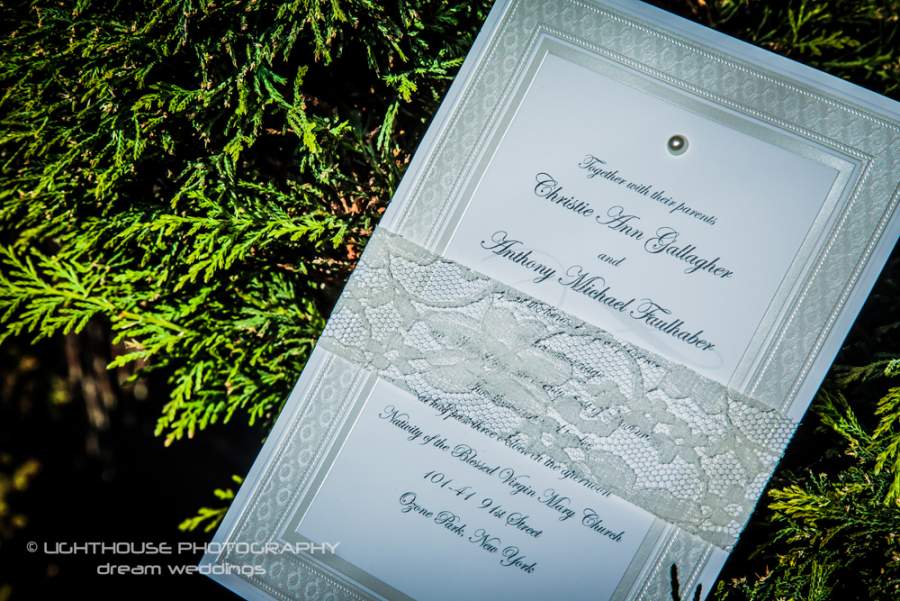 Together with their parents
Christie Ann Gallagher
and
Anthony Michael Faulhaber
at half past three o'clock in the afternoon
Nativity of the Blessed Virgin Mary Church
101-41 91st Street
Ozone Park, New York
© LIGHTHOUSE PHOTOGRAPHY
dream weddings